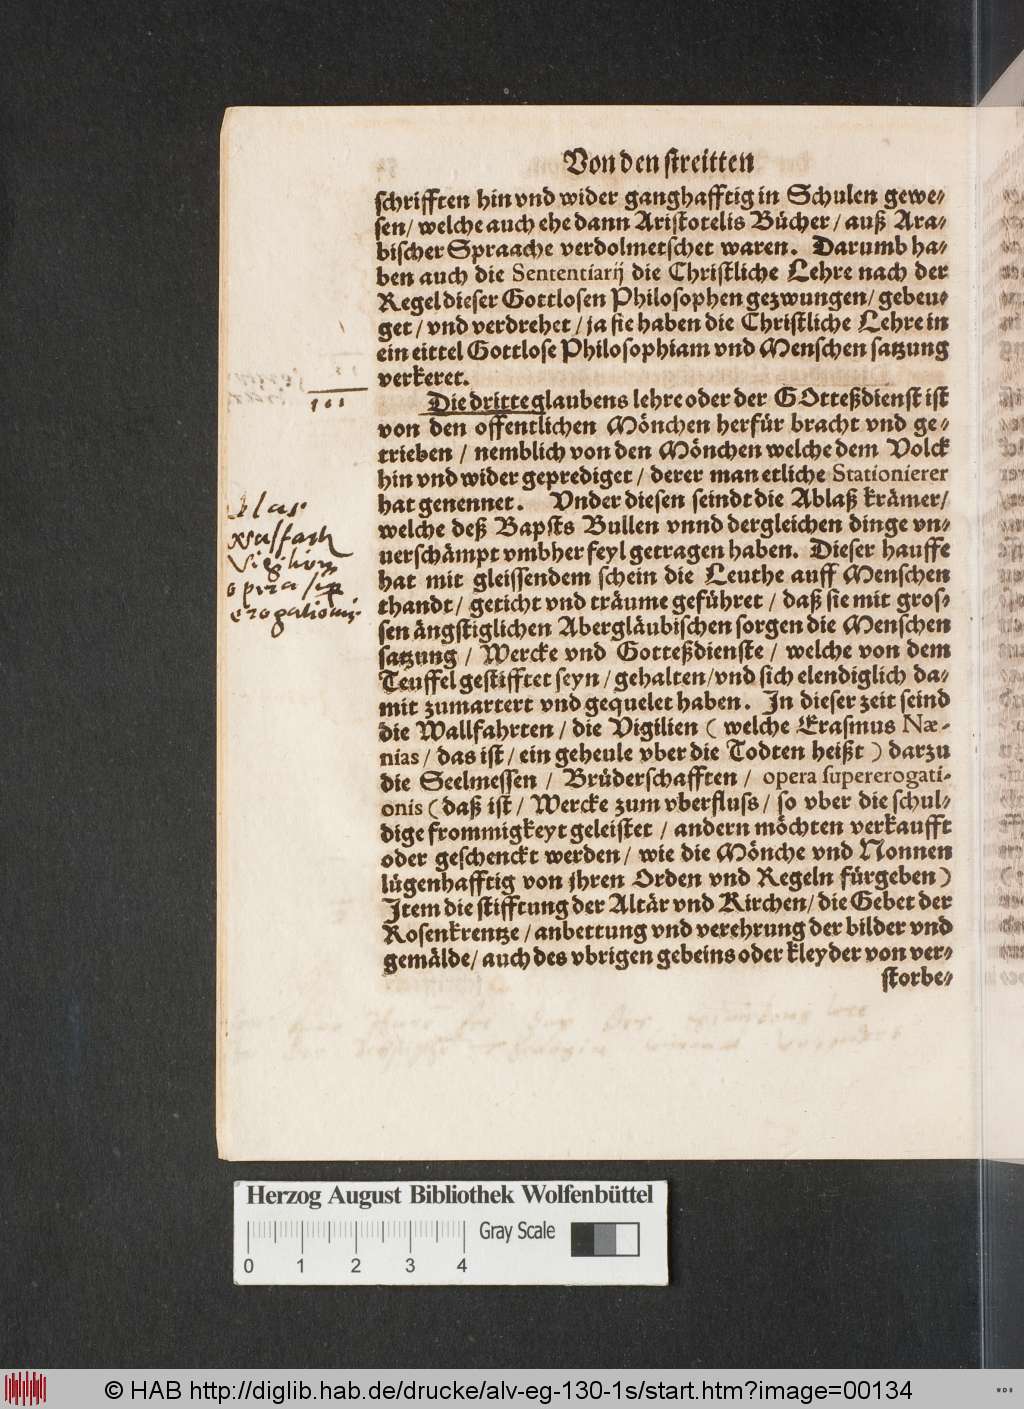 Von den streitten
schrifften hin vnd wider ganghafftig in Schulen gewe-
sen/ welche auch ehe dann Aristotelis Bücher/ auß Ara-
bischer Spraache verdolmetschet waren. Darumb ha-
ben auch die Sententiarij die Christliche Lehre nach der
Regel dieser Gottlosen Philosophen gezwungen/ gebeu-
get/ vnd verdrehet/ ja sie haben die Christliche Lehre in
ein eittel Gottlose Philosophiam vnd Menschen satzung
verkeret.
111
Die dritte glaubens lehre oder der GOtteßdienst ist
von den offentlichen Mönchen herfür bracht vnd ge-
trieben/ nemblich von den Mönchen welche dem Volck
hin vnd wider geprediget/ derer man etliche Stationierer
hat genennet. Vnder diesen seindt die Ablaß krämer/
welche deß Bapsts Bullen vnnd dergleichen dinge vn-
uerschämpt vmbher feyl getragen haben. Dieser hauffe
hat mit gleissendem schein die Leuthe auff Menschen
thandt/ geticht vnd träume geführet/ daß sie mit gros-
sen ängstiglichen Abergläubischen sorgen die Menschen
satzung/ Wercke vnd Gotteßdienste/ welche von dem
Teuffel gestifftet seyn/ gehalten/ vnd sich elendiglich da-
mit zumartert vnd gequelet haben. In dieser zeit seind
die Wallfahrten/ die Vigilien ( welche Erasmus Næ-
nias/ das ist/ ein geheule vber die Todten heißt ) darzu
die Seelmessen/ Brüderschafften/ opera supererogati-
onis ( daß ist/ Wercke zum vberfluss/ so vber die schul-
dige frommigkeyt geleistet/ andern möchten verkaufft
oder geschenckt werden/ wie die Mönche vnd Nonnen
lügenhafftig von jhren Orden vnd Regeln fürgeben)
Item die stifftung der Altär vnd Kirchen/ die Gebet der
Rosenkrentze/ anbettung vnd verehrung der bilder vnd
gemälde/ auch des vbrigen gebeins oder kleyder von ver-
storbe-
opera sup
erogationis.
Herzog August Bibliothek Wolfenbüttel
Gray Scale
0 1 2 3 4
© HAB http://diglib.hab.de/drucke/alv-eg-130-1s/start.htm?image=00134